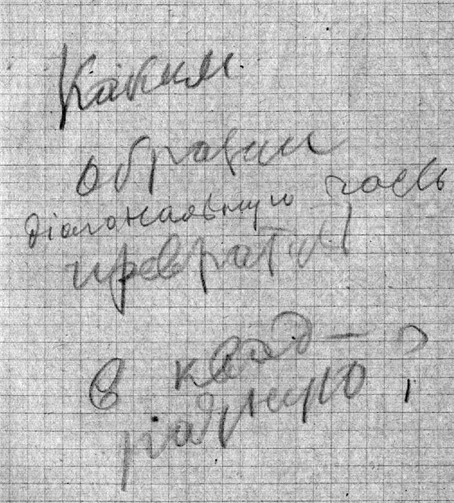 Каким
образом
діагональную часть
в квад–
ратную?